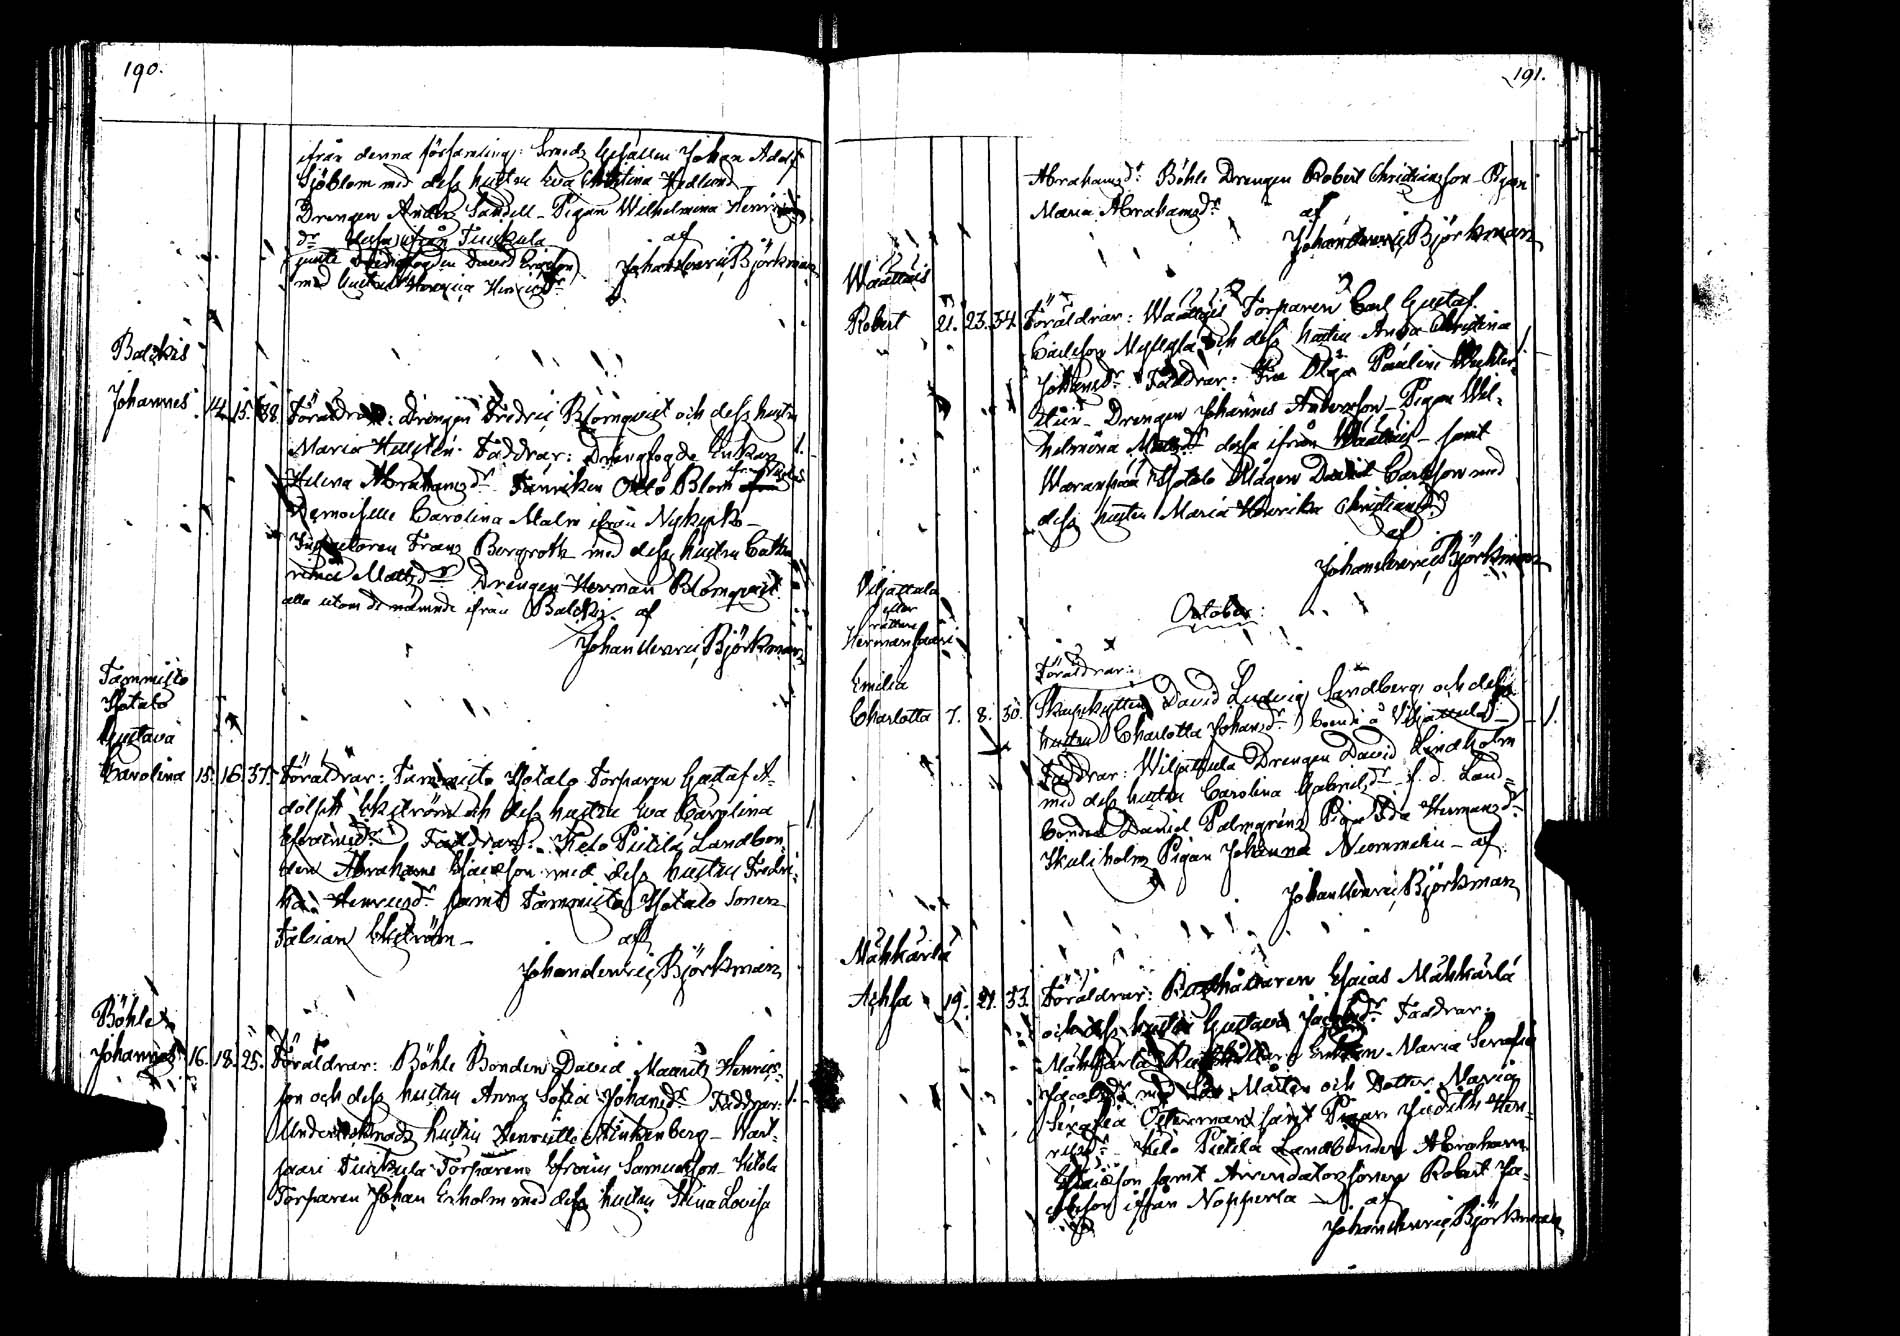 190.
ifrån denna församling: Smeds Gesällen Johan Adolf
Sjöblom med dess hustru Eva Christina Hedlund
Drengen Anders Sandell - Pigan Wilhelmina Henrics
dr dessa ifrån Tuckula
jemte Drengfogden David Ericsson
med hustru Henrica Henricsdr
af
Johan Henric Björkman
Balckis
Johannes 14. 15. 38. Föräldrar: Drengen Fredric Blomqvist och dess hustru
Maria Hellstén. Faddrar: Drengfogde Enkan
Helena Abrahamsdr Fänriken Otto Blom
Demoiselle Carolina Malm ifrån Nykyrko -
Inspectoren Frans Bergroth med dess hustru Catha
rina Mattsdr Drengen Herman Blomqvist
alla utom de nämnde ifrån Balckis. af
Johan Henric Björkman
Tammisto
Ytotalo
Gustava
Carolina 15. 16. 37. Föräldrar: Tammisto Ytotalo Torparen Gustaf A-
dolph Ekström och dess hustru Eva Carolina
Efraimsdr Faddrar: Kelo Pietilä Landbon-
den Abraham Esaiesson med dess hustru Fredri-
ka Henricsdr samt Tammisto Ytotalo Sonen
Fabian Ekström -
af
Johan Henric Björkman
Böhle
Johannes 16. 18. 25. Föräldrar: Böhle Bonden David Maurits Henrics-
son och dess hustru Anna Sofia Johansdr Faddrar:
hustru Henriette Finkenberg -
saari Tuckula Torparen Efraim Samuelsson - Kitola
Torparen Johan Ekholm med dess hustru Stina Lovisa
191.
Abrahamsdr Böhle Drengen Robert Christiansson - Pigan
Maria Abrahamsdr
af
Johan Henric Björkman
Waattais
Robert 21. 23. 34. Föräldrar: Waattais Torparen Carl Gustaf
Carlsson och dess hustru Anna Christina
Johansdr Faddrar: Fru Olga Pauline
Drengen Johannes Andersson - Pigan Wil-
helmina Mattsdr dessa ifrån Waattais - samt
Waranpää Ytotalo Mågen David Carlsson med
dess hustru Maria Henrika Christiansdr
af
Johan Henric Björkman
October:
Viljattula
eller
rättare
Hermansaari
Emilia
Charlotta 7. 8. 30. Föräldrar:
Skarpskytten David Ludvig Sandberg och dess
hustru Charlotta Johansdr boende å Viljattula
Faddrar: Wiljattula Drengen David Lindholm
med dess hustru Carolina Gabrielsdr f. d. Land-
bonden David Palmgrén Pigan Ida Hermansdr
Skuliholm Pigan Johanna Nummelin - af
Johan Henric Björkman
Mähkärlä
Achsa 19. 21. 33. Föräldrar: Rusthållaren Esaias Mähkärlä
och dess hustru Gustava Jacobsdr Faddrar:
Mähkärlä Rusthållare Enkan Maria Serafia
Jacobsdr med Son Mårten och Dotter Maria
Serafia Österman samt Pigan Judith Hen-
ricsdr - Kelo Pietilä Landbonden Abraham
Esaiesson samt Arrendatorssonen Robert Ja-
cobsson ifrån Nopperla - af
Johan Henric Björkman